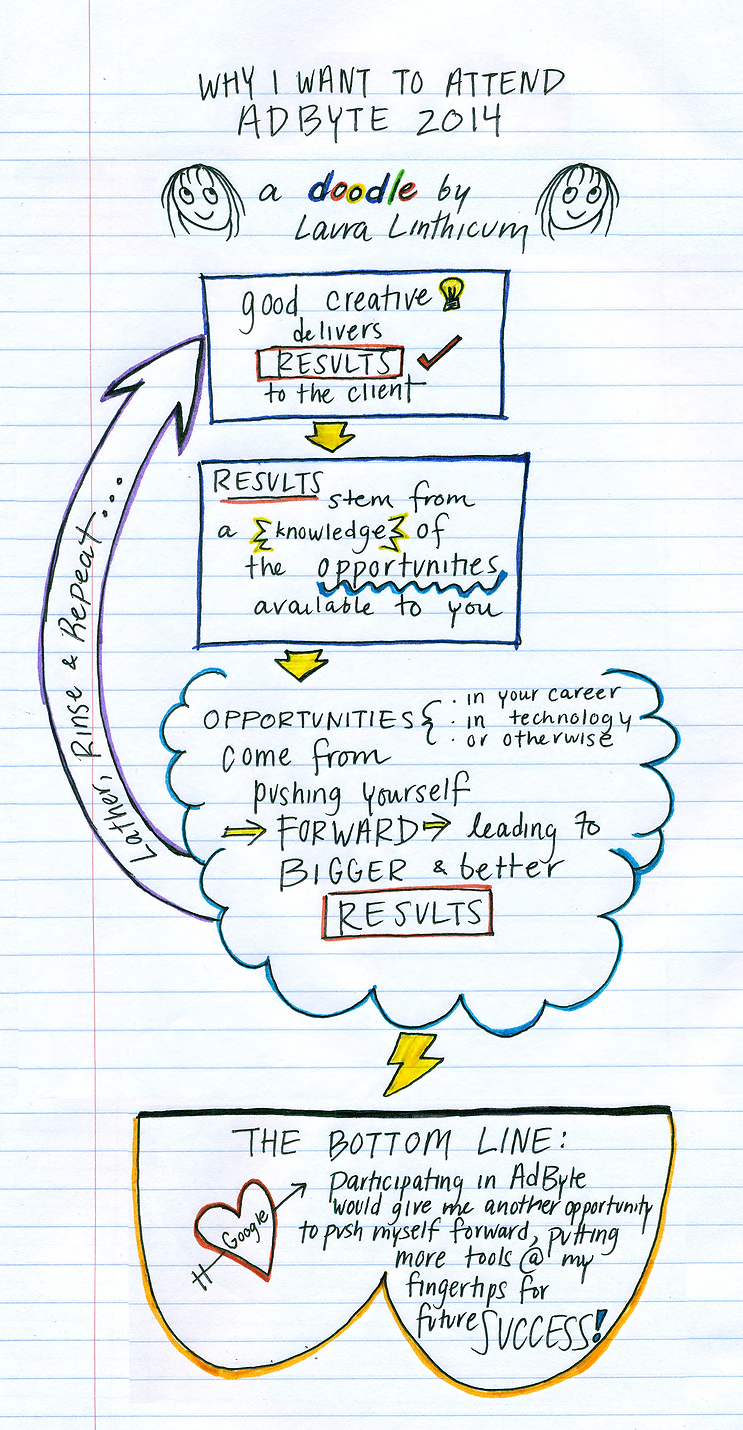 WHY I WANT TO ATTEND
ADBYTE 2014
a doodle by
Laura Linthicum
good creative
delivers
RESULTS
to the client
RESULTS
stem from
a knowledge of
the opportunities
available to you
OPPORTUNITIES { · in your career
· in technology
· or otherwise
come from
pushing yourself
FORWARD leading to
BIGGER & better
RESULTS
Lather, Rinse & Repeat....
THE BOTTOM LINE:
Google
Participating in AdByte
would give me another opportunity
to push myself forward, putting
more tools @ my
fingertips for
future SUCCESS!